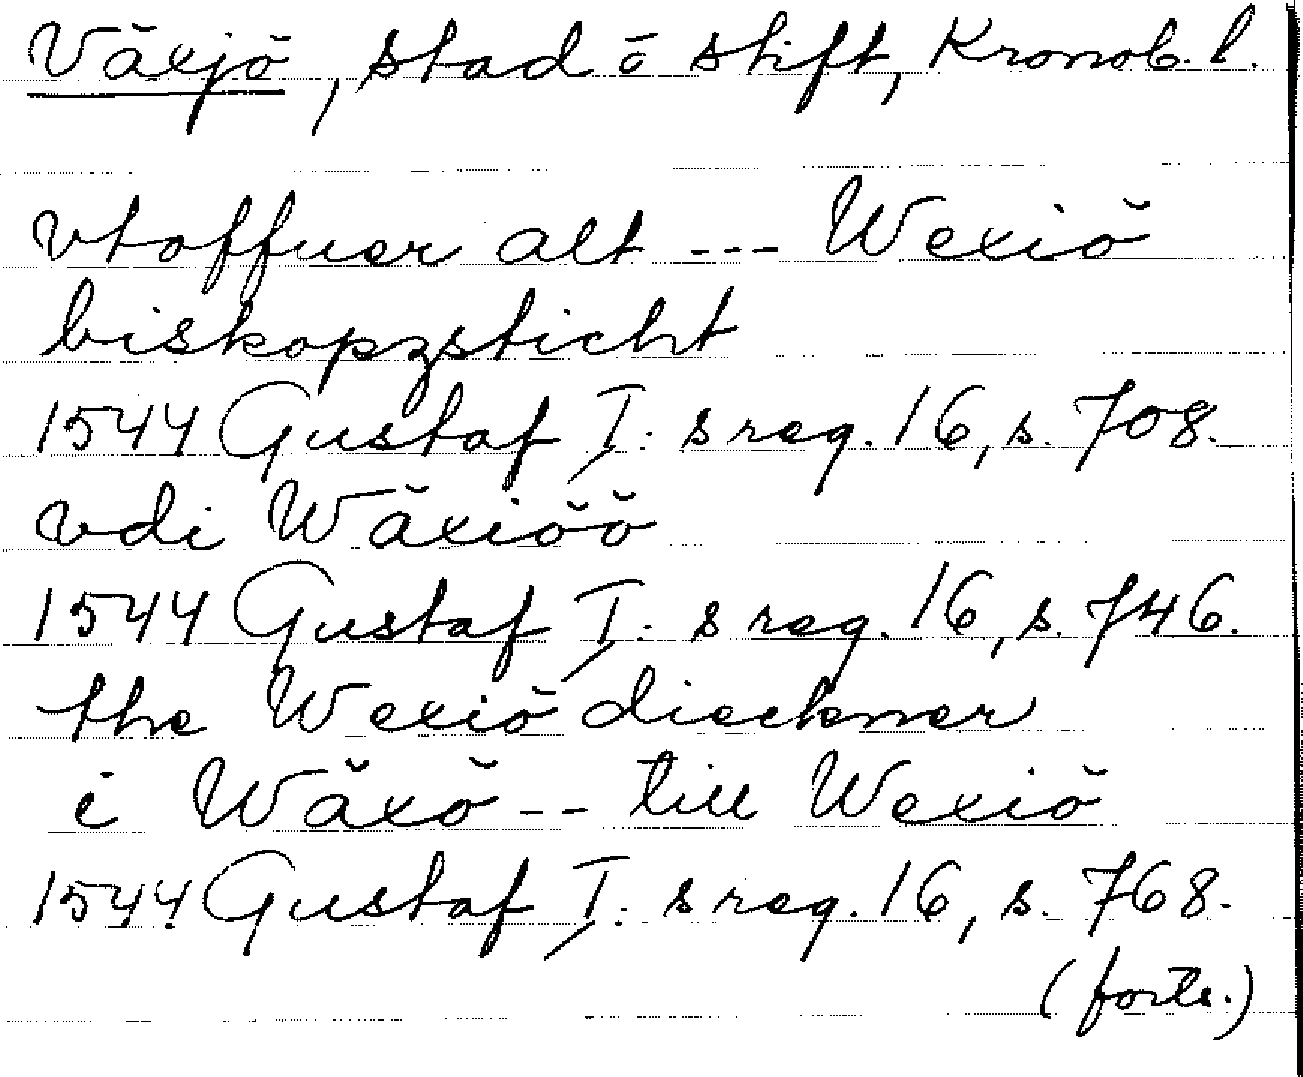 Växjö, stad o stift, Kronob. l.
vtoffuer alt --- Wexiö
biskopzsticht
1544 Gustaf I:s reg. 16, s. 708.
vdi Wäxiöö
1544 Gustaf I:s reg. 16, s. 746.
the Wexiö dieckner
i Wäxö -- till Wexiö
1544 Gustaf I:s reg. 16, s. 768.
(forts.)